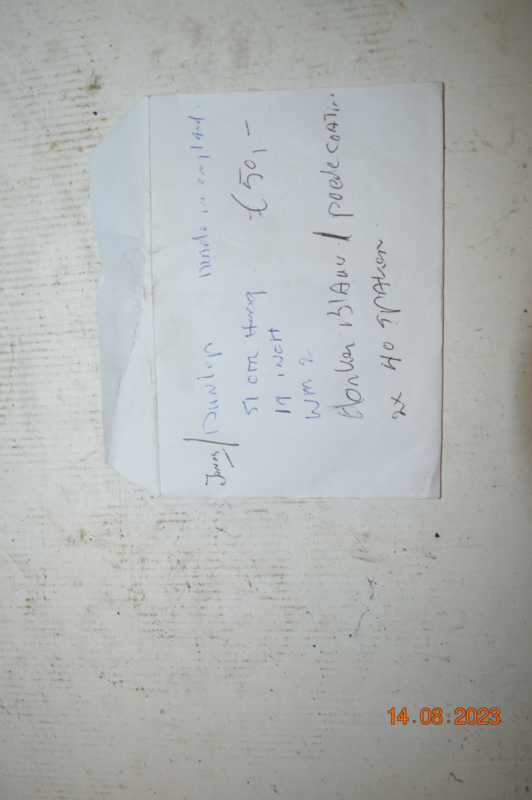 Jones/Dunlop made in england.
51 cm Hoog € 50,-
19 INCH
WM 2
donker blauw / poedercoatin.
2x 40 SPAKEN.
14.08.2023